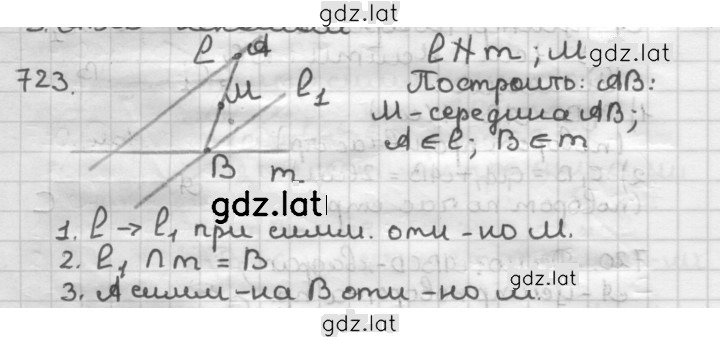 gdz.lat
723.
ℓ A
M ℓ₁
B m
ℓ ∦ m; M
gdz.lat
Построить: AB:
M-середина AB;
A ∈ ℓ; B ∈ m
gdz.lat
1. ℓ → ℓ₁ при симм. отн-но M.
2. ℓ₁ ∩ m = B
3. A симм-на B отн-но M.
gdz.lat
gdz.lat